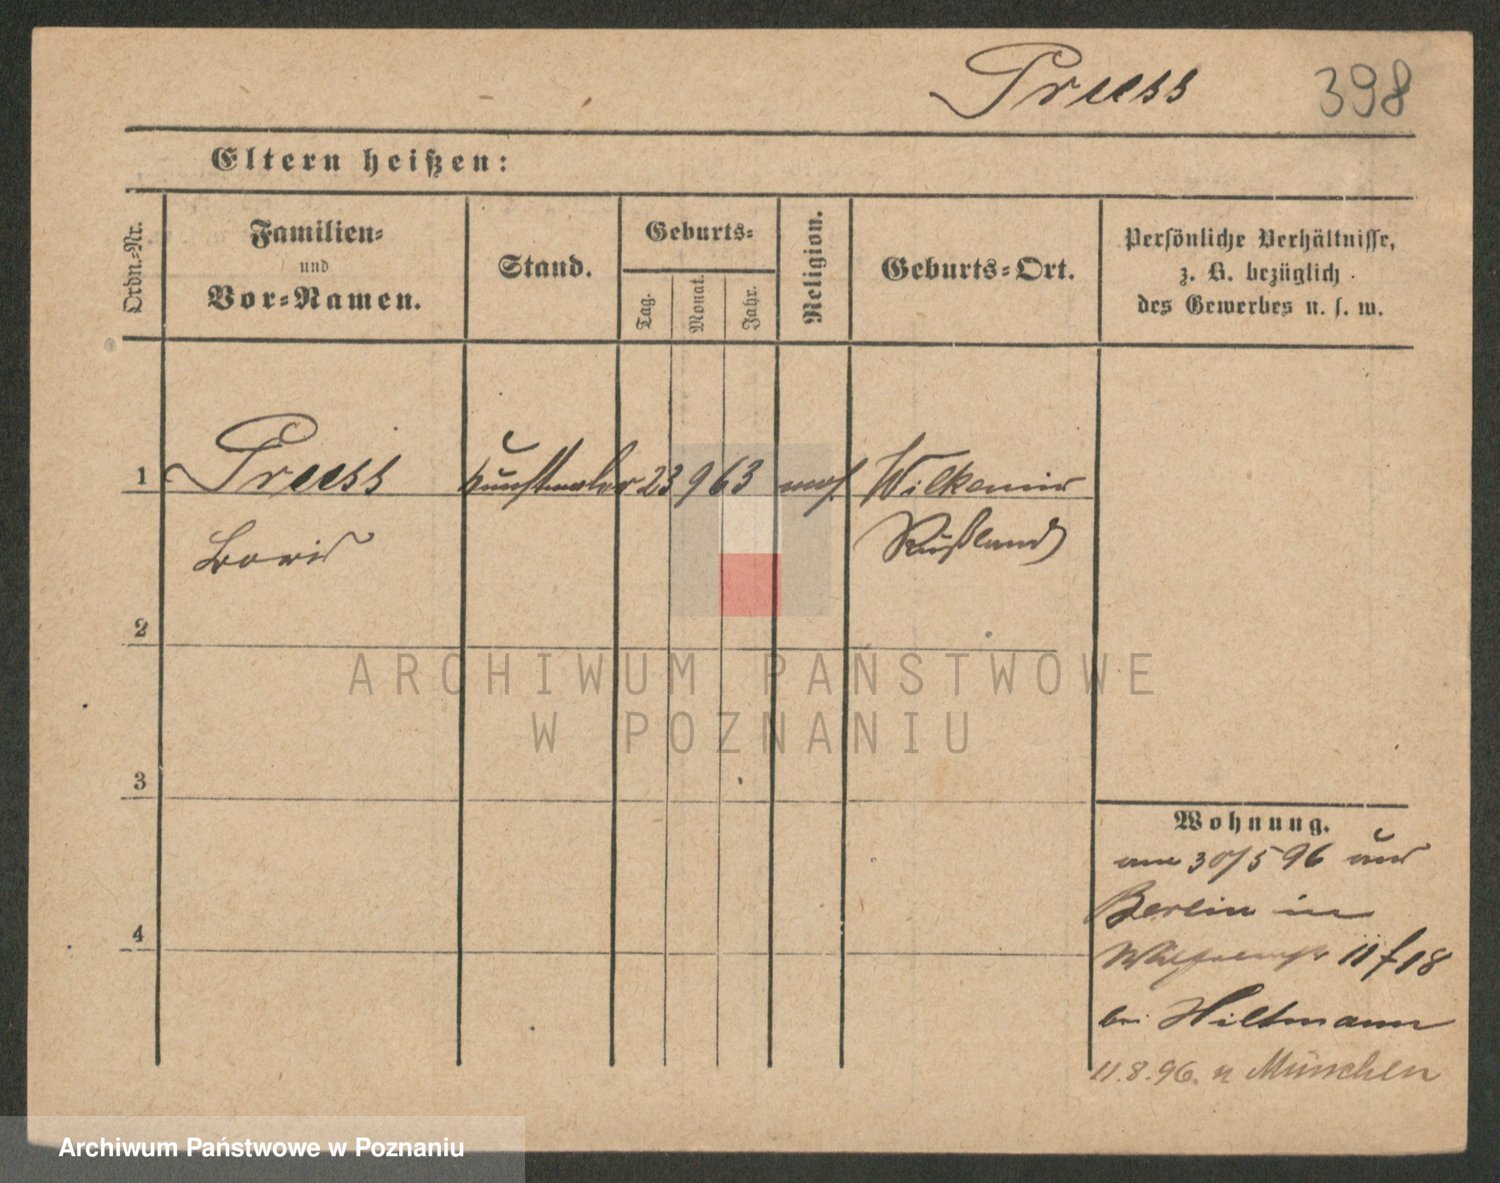 Preess
398
Eltern heißen:
Ordn.-Nr.
Familien-
und
Vor-Namen.
Stand.
Geburts-
Tag.
Monat.
Jahr.
Religion.
Geburts-Ort.
Persönliche Verhältnisse,
z. B. bezüglich
des Gewerbes u. s. w.
1 Preess Kunstmaler 23 9 63 mos. Wilkomir
Boris Rußland
2
3
4
Wohnung.
am 30/5 96 aus
Berlin in
11 f 18
bei Hiltmann
11.8.96. n München
ARCHIWUM PAŃSTWOWE
W POZNANIU
Archiwum Państwowe w Poznaniu